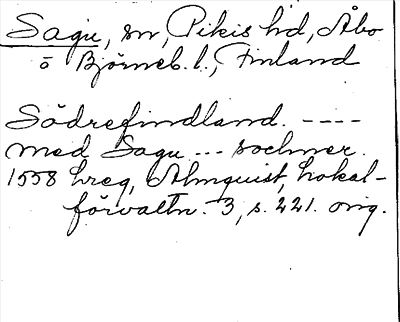 Sagu, sn, Pikis hd, Åbo
o Björneb. l., Finland
Södrefindland. ----
med Sagu --- sochner.
1558 hreg, Almquist, Lokal-
förvaltn. 3, s. 221. orig.